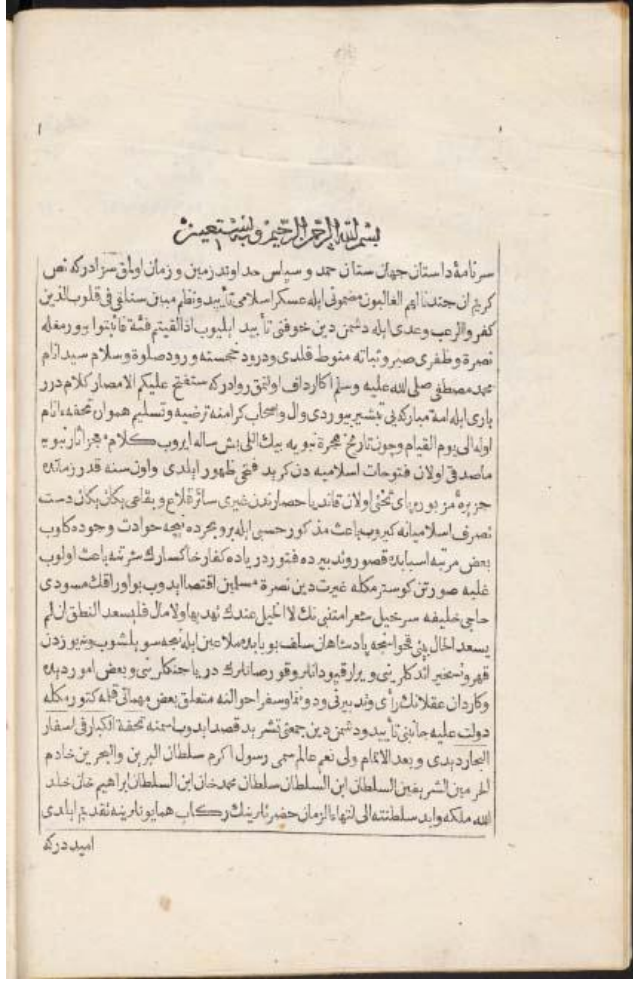 ١ ١
بسم الله الرحمن الرحيم وبه نستعين
سرنامۀ داستان جهان ستان حمد و سپاس خداوند زمین و زمان اولمق سزادر که نص
کریم ان جندنا لهم الغالبون مضمونی ایله عسکر اسلامی تأیید و نظم مبین سنلقی فی قلوب الذین
کفروا الرعب وعدی ایله دشمن دین خوفنی تأیید ایلیوب اذا لقیتم فئة فاثبتوا بیورمغله
نصرة و ظفری صبر و ثباته منوط قلدی و درود خجسته ورود صلوة و سلام سید انام
محمد مصطفی صلی الله علیه وسلم اکا ارداف اولنمق روادر که ستفتح علیکم الامصار کلام درر
باری ایله امة مبارکه یی تبشیر بیوردی وال و اصحاب کرامنه ترضیه و تسلیم همواره تحفه انام
اوله الی یوم القیام و چون تاریخ هجرة نبویه بیك اللی بش ساله ایروب کلام معجز اثار نبویه
ماصدقی اولان فتوحات اسلامیه دن کرید فتحی ظهور ایلدی و اون سنه قدر زمانده
جزیرۀ مزبوره پای تختی اولان قاندیا حصارندن غیری سائر قلاع و بقاعی یکان یکان دست
تصرف اسلامیانه کیروب باعث مذکور حسبی ایله بر و بحرده نیجه حوادث وجوده کلوب
بعض مرتبه اسبابده قصور و تدبیرده فتور دریاده کفار خاکسارك سرتنه باعث اولوب
غلبه صورتن کوسترمکله غیرت دین نصرة مسلمین اقتضا ایدوب بو اوراقك مسودی
حاجی خلیفه سرخیل شعرا متنبی نك لا خیل عندك تهدیها ولا مال فلیسعد النطق ان لم
یسعد الحال بیتی فحواسنجه پادشاهان سلف بو بابده ملاعین ایله نیجه سویلشوب و نه یوزدن
قهر و تسخیر ایتدکلرینی و یرار قپودانلر و قورصانلرك دریا جنکلرینی و بعض امور دیده
و کاردان عقلانك رأی و تدبیرنی و دوننما و سفر احوالنه متعلق بعض مهماتی قلمه کتورمکله
دولت علیه جانبنی تأیید و دشمن دین جمعنی تشرید قصد ایدوب اسمنه تحفة الکبار فی اسفار
البحار دیدی و بعد الاتمام ولی نعم عالم سمی رسول اکرم سلطان البرین والبحرین خادم
الحرمین الشریفین السلطان ابن السلطان سلطان محمد خان ابن السلطان ابراهیم خان خلد
الله ملکه و ابد سلطنته الی انتهاء الزمان حضرتلرینك رکاب همایونلرینه تقدیم ایلدی
امیددر که